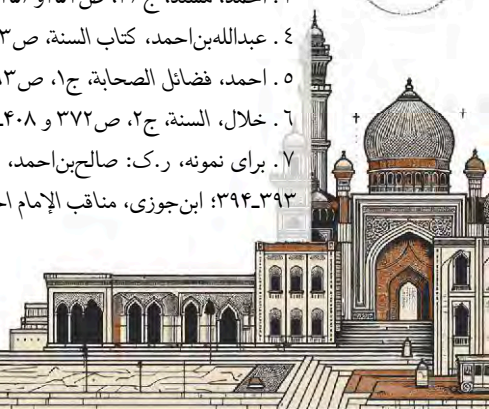 ٤. عبدالله‌بن‌احمد، کتاب السنة، ص
٥. احمد، فضائل الصحابة، ج١، ص
٦. خلال، السنة، ج٢، ص۳۷۲ و ۴۰۸ـ
٧. برای نمونه، ر.ک: صالح‌بن‌احمد،
۳۹۳ـ۳۹۴؛ ابن‌جوزی، مناقب الإمام